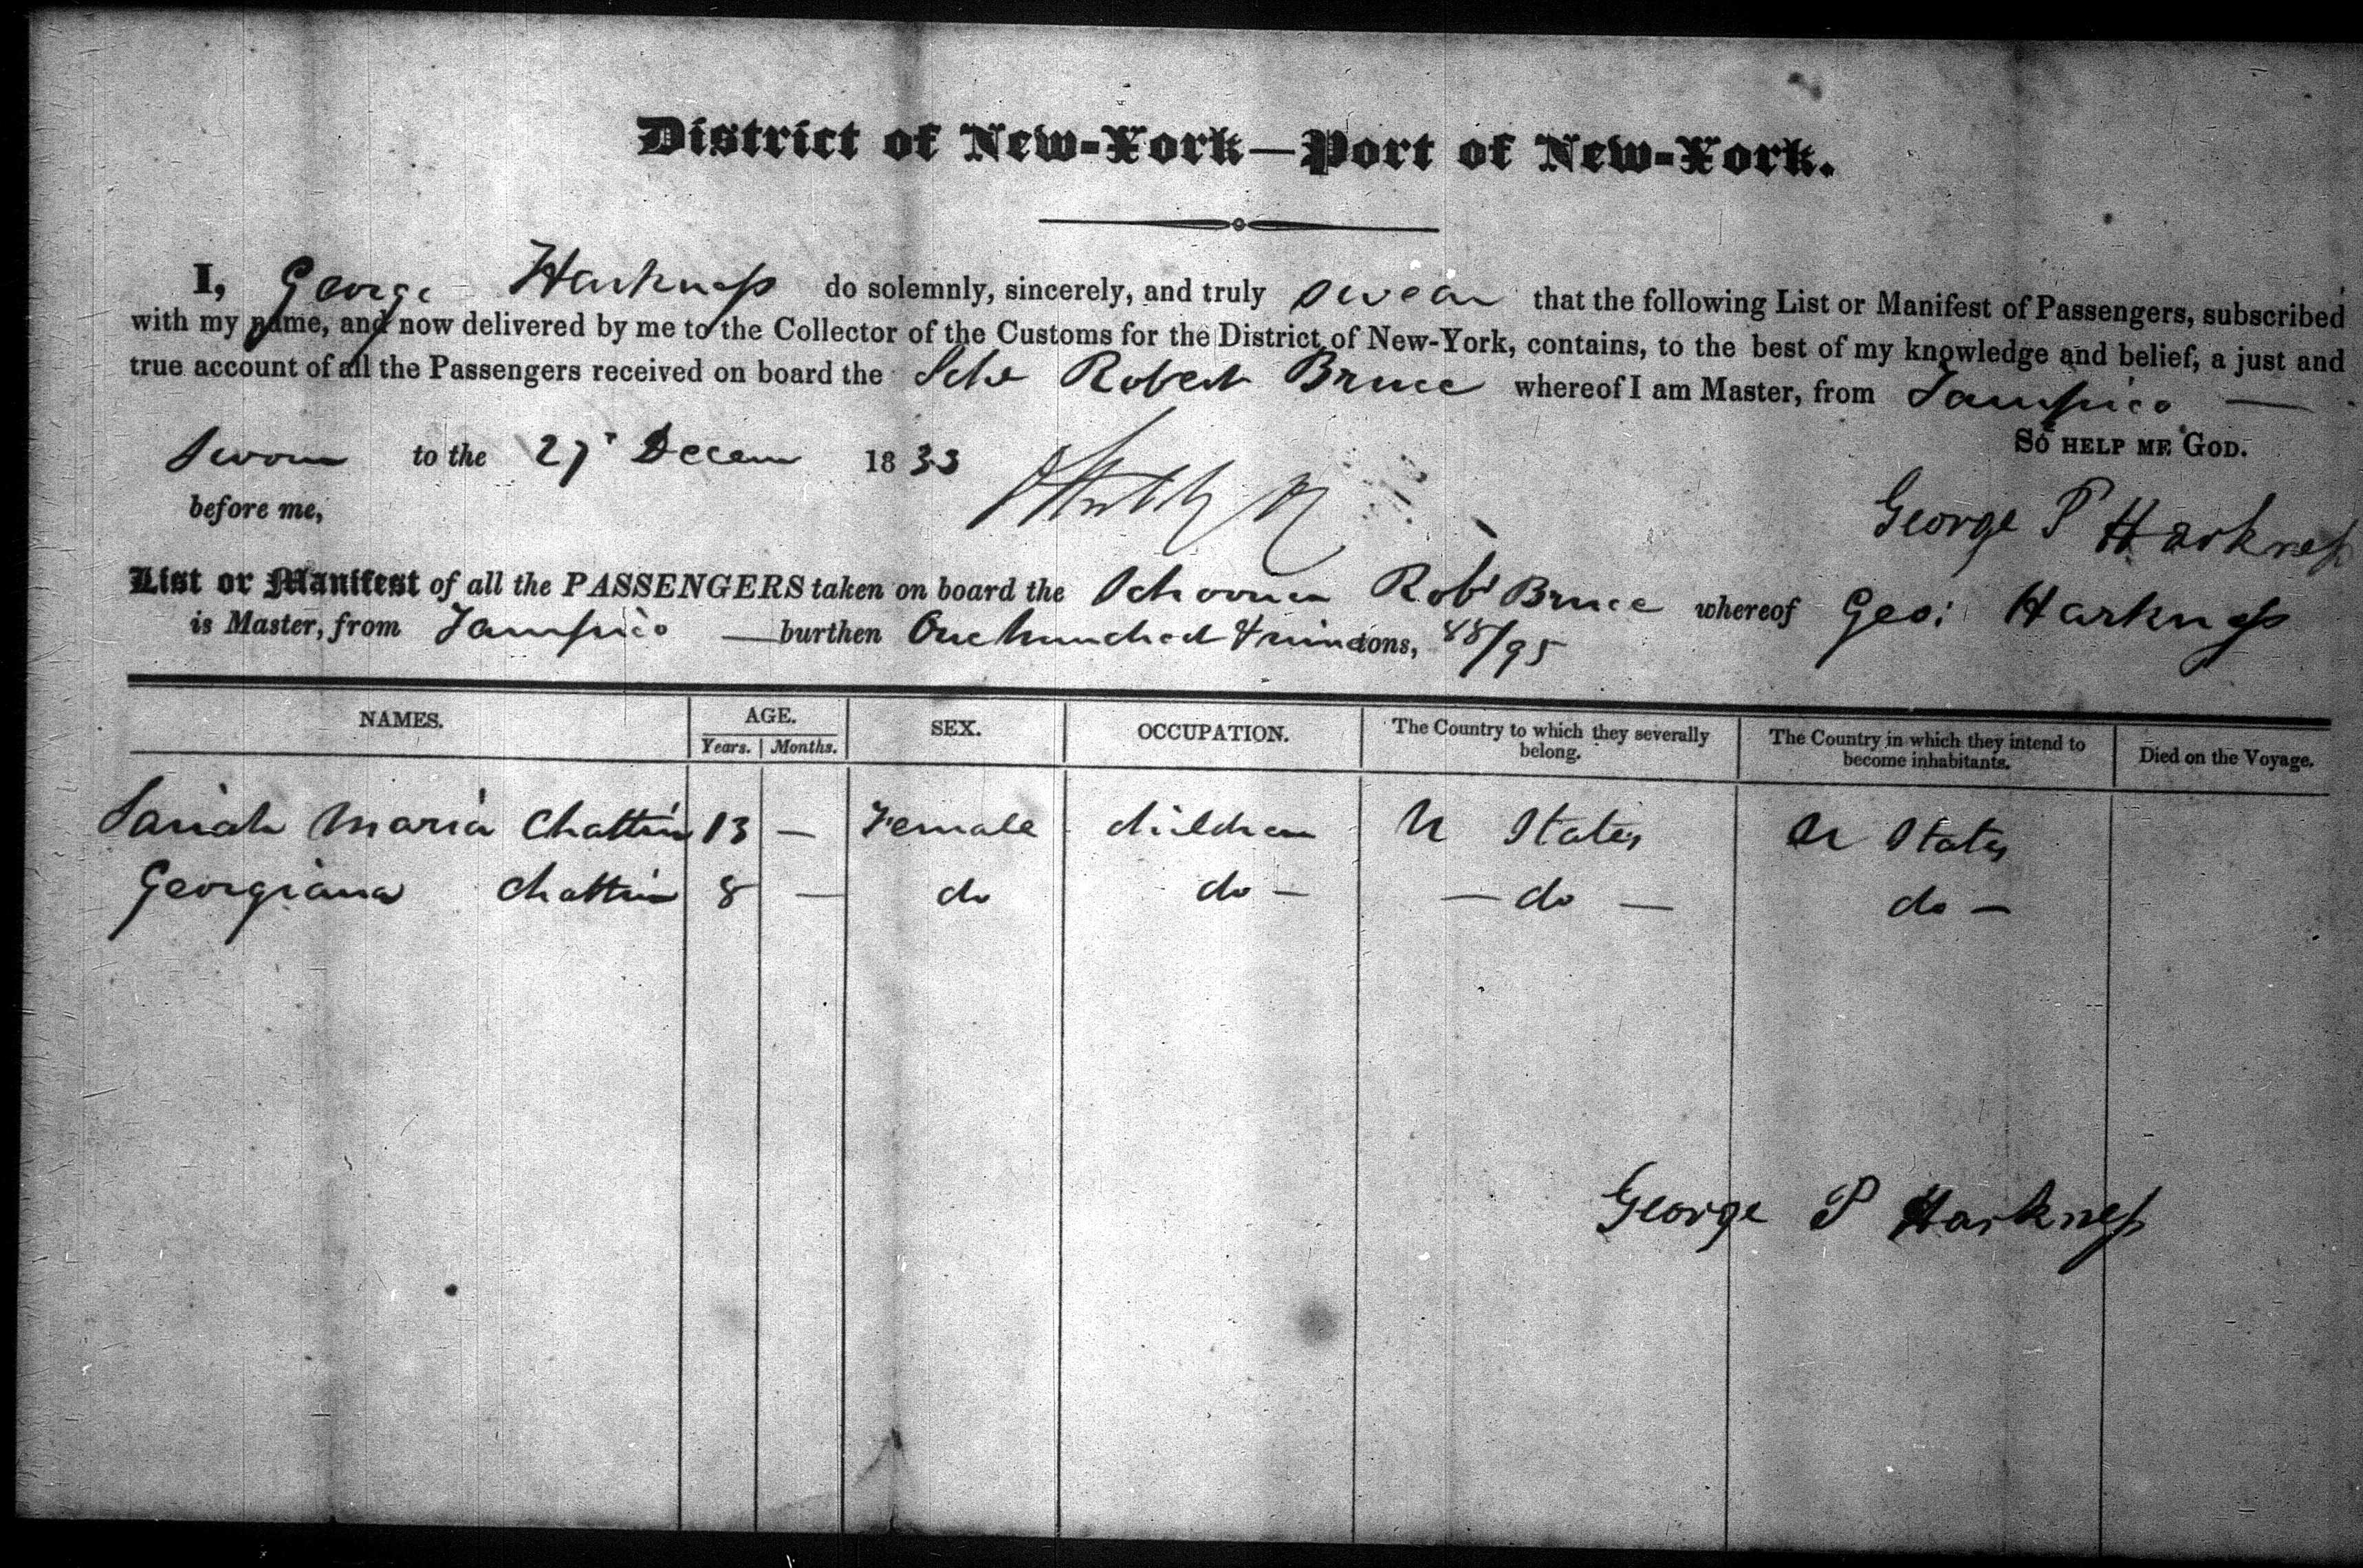 District of New-York—Port of New-York.
I, George Harkness do solemnly, sincerely, and truly swear that the following List or Manifest of Passengers, subscribed
with my name, and now delivered by me to the Collector of the Customs for the District of New-York, contains, to the best of my knowledge and belief, a just and
true account of all the Passengers received on board the Schr Robert Bruce whereof I am Master, from Tampico —
So help me God.
Sworn to the 27 Decem 1833
before me,
George P Harkness
List or Manifest of all the PASSENGERS taken on board the Schooner Robt Bruce whereof Geo: Harkness
is Master, from Tampico — burthen One hundred & nine tons, 48/95
NAMES. AGE. SEX. OCCUPATION. The Country to which they severally belong. The Country in which they intend to become inhabitants. Died on the Voyage.
Years. Months.
Sariah Maria Chattin 13 — Female children U States U States
Georgiana Chattin 8 — do do — — do — do —
George P Harkness